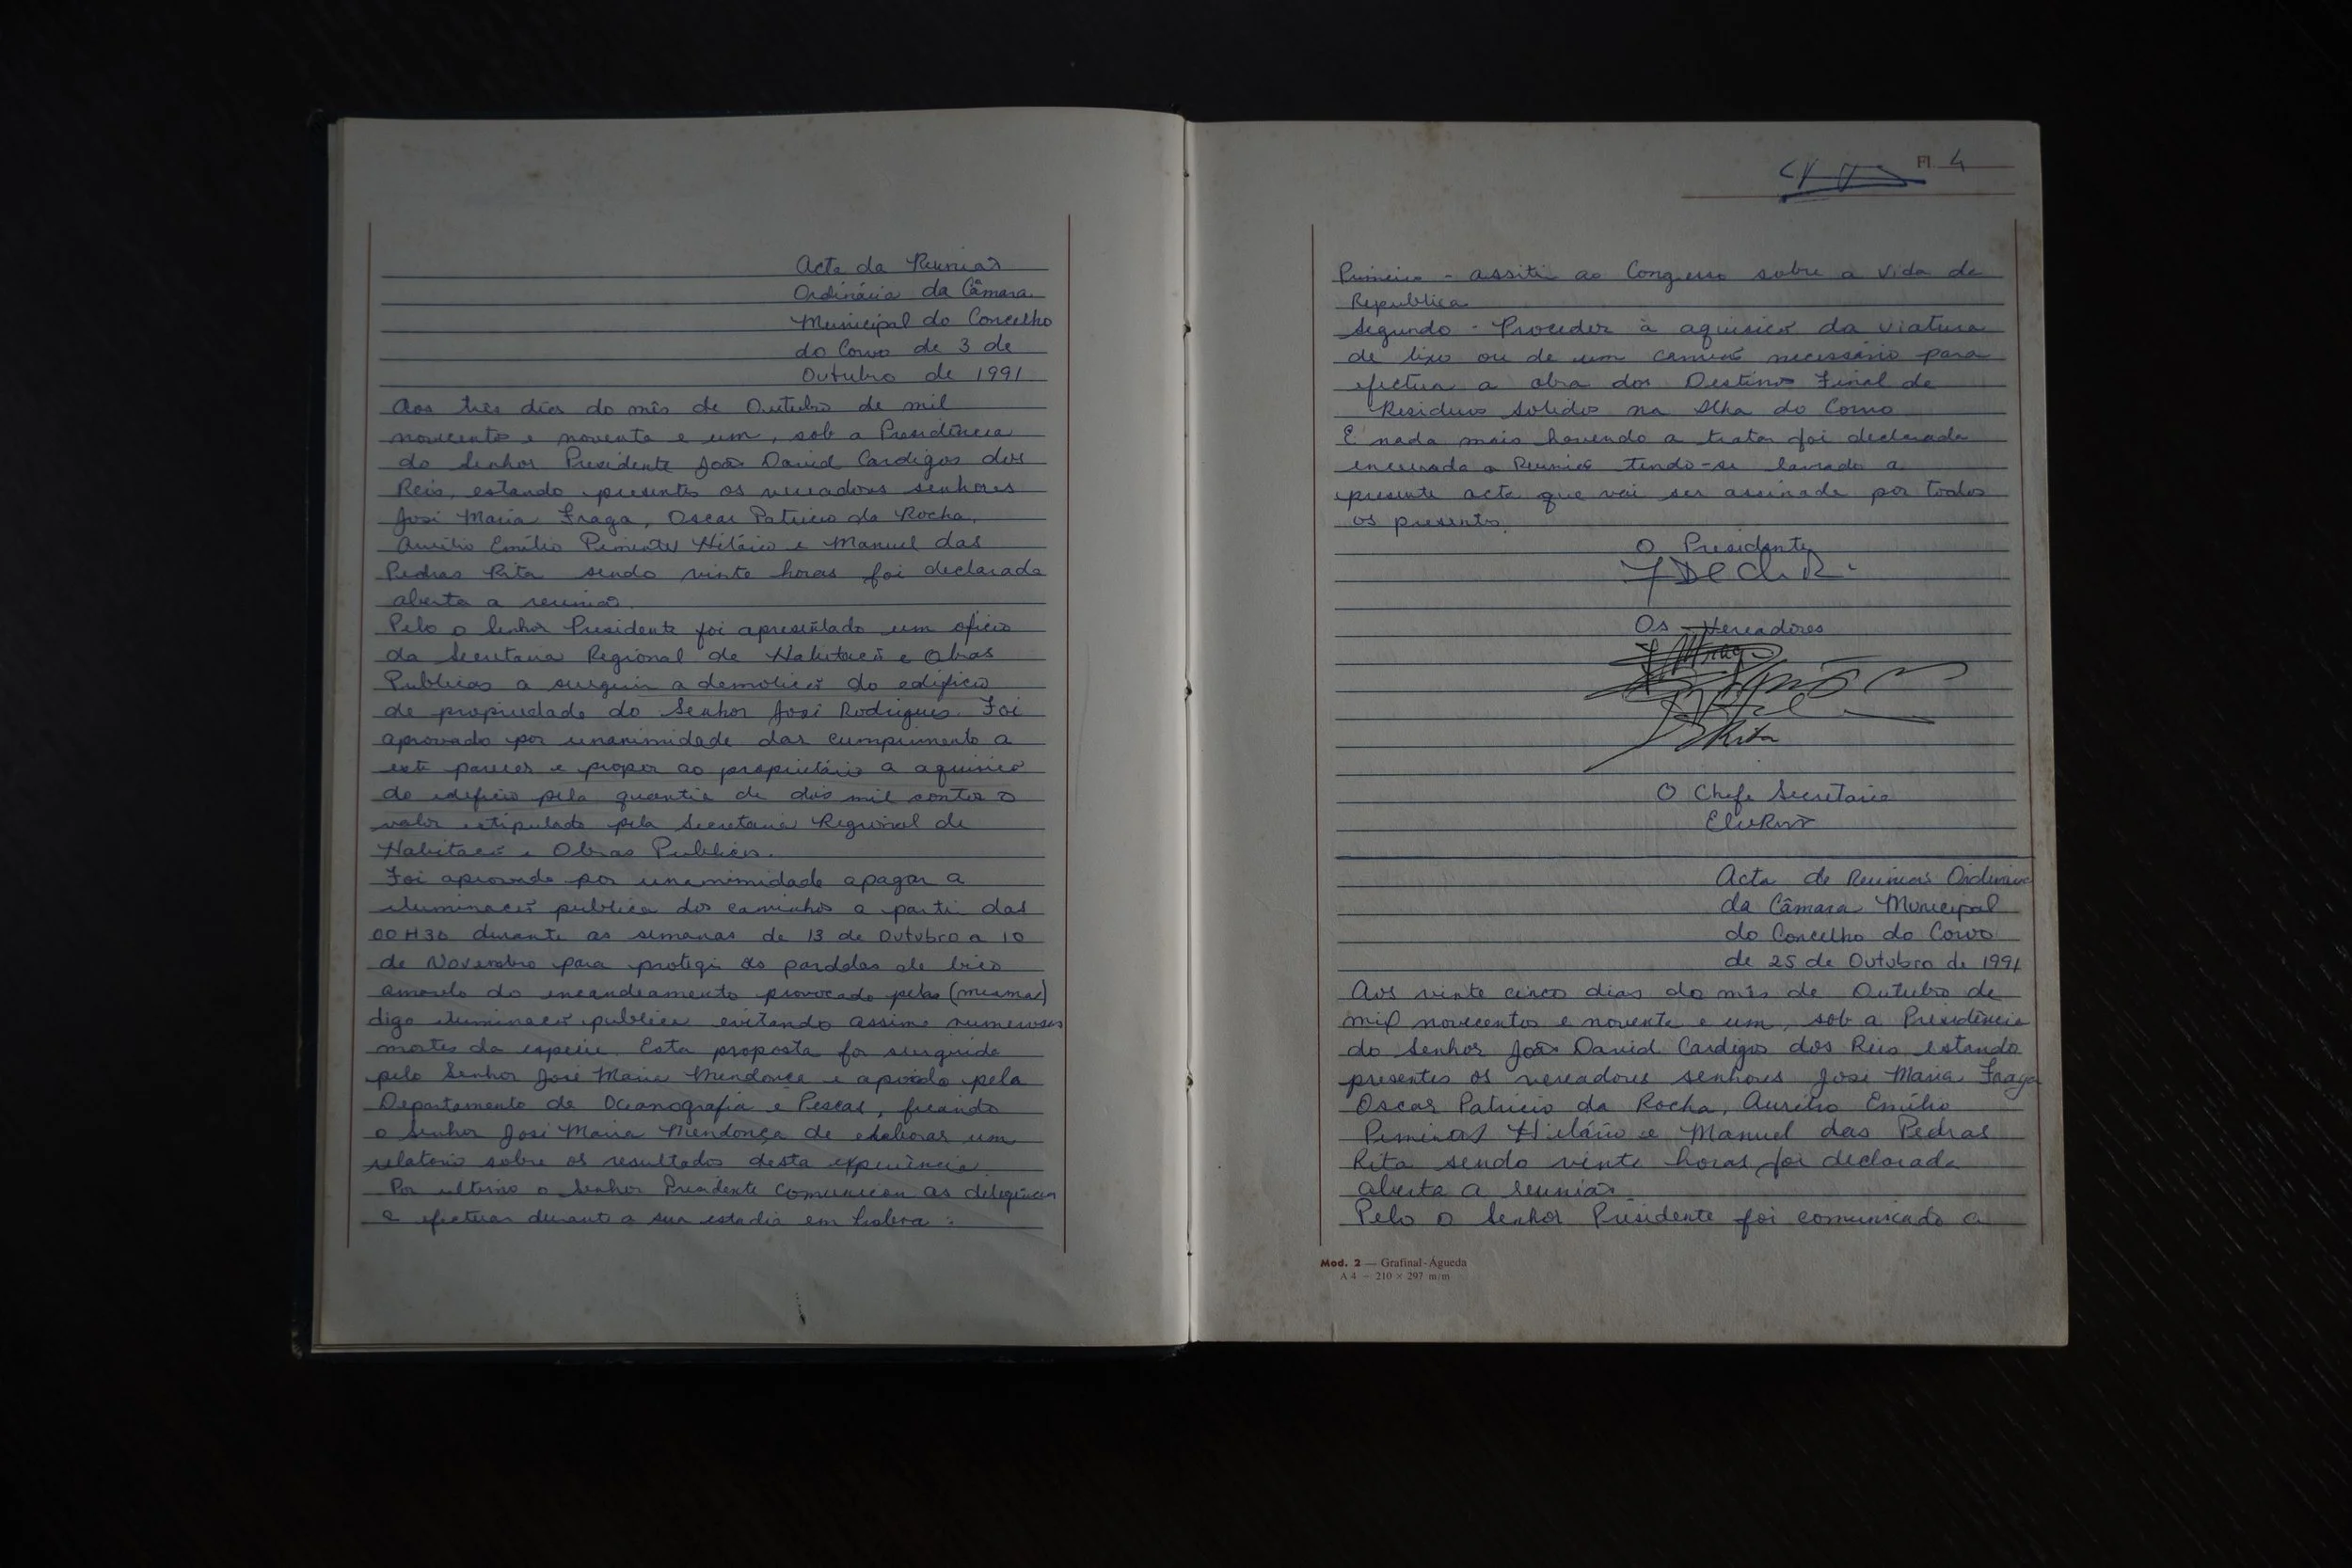 Acta da Reunião
Ordinária da Câmara
Municipal do Concelho
do Corvo de 3 de
Outubro de 1991
Aos três dias do mês de Outubro de mil
novecentos e noventa e um, sob a Presidência
do Senhor Presidente João David Cardigos dos
Reis, estando presentes os vereadores senhores
José Maria Fraga, Oscar Patricio da Rocha,
Aurélio Emílio Pimentel Hilário e Manuel das
Pedras Rita sendo vinte horas foi declarada
aberta a reunião.
Pelo o Senhor Presidente foi apresentado um oficio
da Secretaria Regional de Habitacão e Obras
Publicas a surgerir a demolicão do edificio
de propriedade do Senhor José Rodrigues. Foi
aprovado por unanimidade dar cumprimento a
este parecer e propor ao proprietário a aquisicão
do edificio pela quantia de dois mil contos o
valor estipulado pela Secretaria Regional de
Habitacão e Obras Publicas.
Foi aprovado por unanimidade apagar a
iluminacão publica dos caminhos a partir das
00H30 durante as semanas de 13 de Outubro a 10
de Novembro para protegir as pardelas de bico
amarelo do encandeamento provocado pelas (mesmas)
digo iluminacão publica evitando assim numerosas
mortes da especie. Esta proposta foi surgerida
pelo Senhor José Maria Mendonça e apoiado pela
Departamento de Oceanografia e Pescas, ficando
o Senhor José Maria Mendonça de elaborar um
relatorio sobre os resultados desta experiência.
Por ultimo o Senhor Presidente comunicou as deligências
a efectuar durante a sua estadia em Lisboa:
Fl 4
Primeiro - assitir ao Congresso sobre a Vida da
Republica
Segundo - Proceder à aquisicão da viatura
de lixo ou de um camião necessário para
efectuar a obra dos Destinos Final de
Residuos Solidos na Ilha do Corvo
E nada mais havendo a tratar foi declarada
encerrada a Reunião tendo-se lavrado a
presente acta que vai ser assinada por todos
os presentes.
O Presidente
Os Vereadores
Rita
O Chefe Secretaria
Acta de Reunião Ordinária
da Câmara Municipal
do Concelho do Corvo
de 25 de Outubro de 1991
Aos vinte cinco dias do mês de Outubro de
mil novecentos e noventa e um, sob a Presidência
do Senhor João David Cardigos dos Reis estando
presentes os vereadores senhores José Maria Fraga
Oscar Patricio da Rocha, Aurélio Emílio
Pimentel Hilário e Manuel das Pedras
Rita sendo vinte horas foi declarada
aberta a reunião.
Pelo o Senhor Presidente foi comunicado a
Mod. 2 — Grafinal - Águeda
A 4 — 210 × 297 m/m